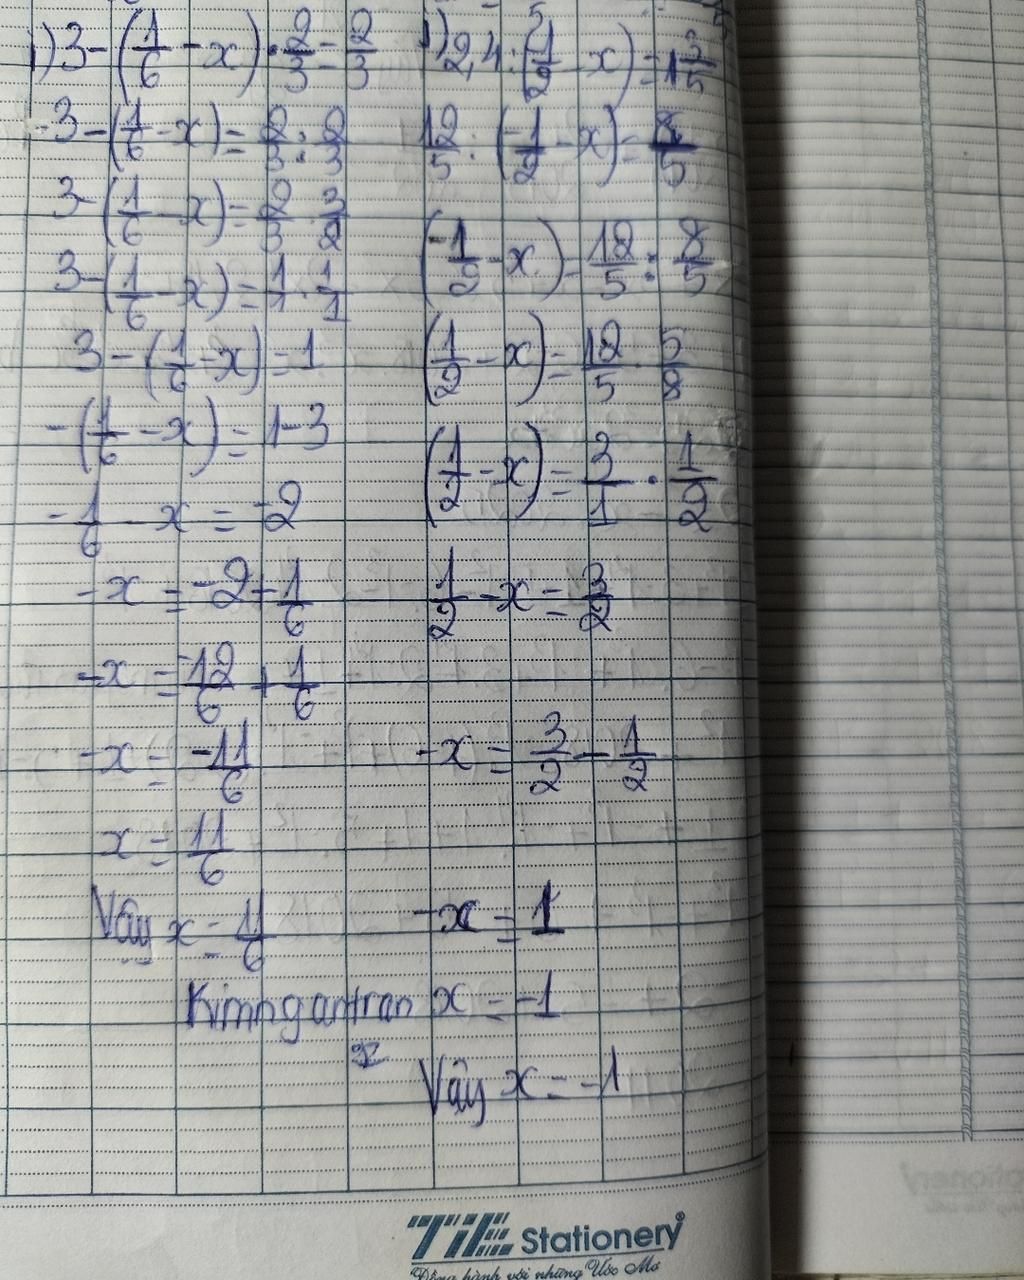 1) 3 - (1/6 - x) . 2/3 = 2/3
3 - (1/6 - x) = 2/3 : 2/3
3 - (1/6 - x) = 2/3 . 3/2
3 - (1/6 - x) = 1/1 . 1/1
3 - (1/6 - x) = 1
- (1/6 - x) = 1 - 3
- 1/6 - x = -2
- x = -2 + 1/6
- x = -12/6 + 1/6
- x = -11/6
x = 11/6
Vậy x = 11/6
Kimngantran
2,4 : (1/2 - x) = 1 3/5
12/5 : (-1/2 - x) = 8/5
(-1/2 - x) = 12/5 : 8/5
(1/2 - x) = 12/5 . 5/8
(1/2 - x) = 3/1 . 1/2
1/2 - x = 3/2
- x = 3/2 - 1/2
- x = 1
x = -1
Vậy x = -1
TiE Stationery®
Đồng hành với những Ước Mơ